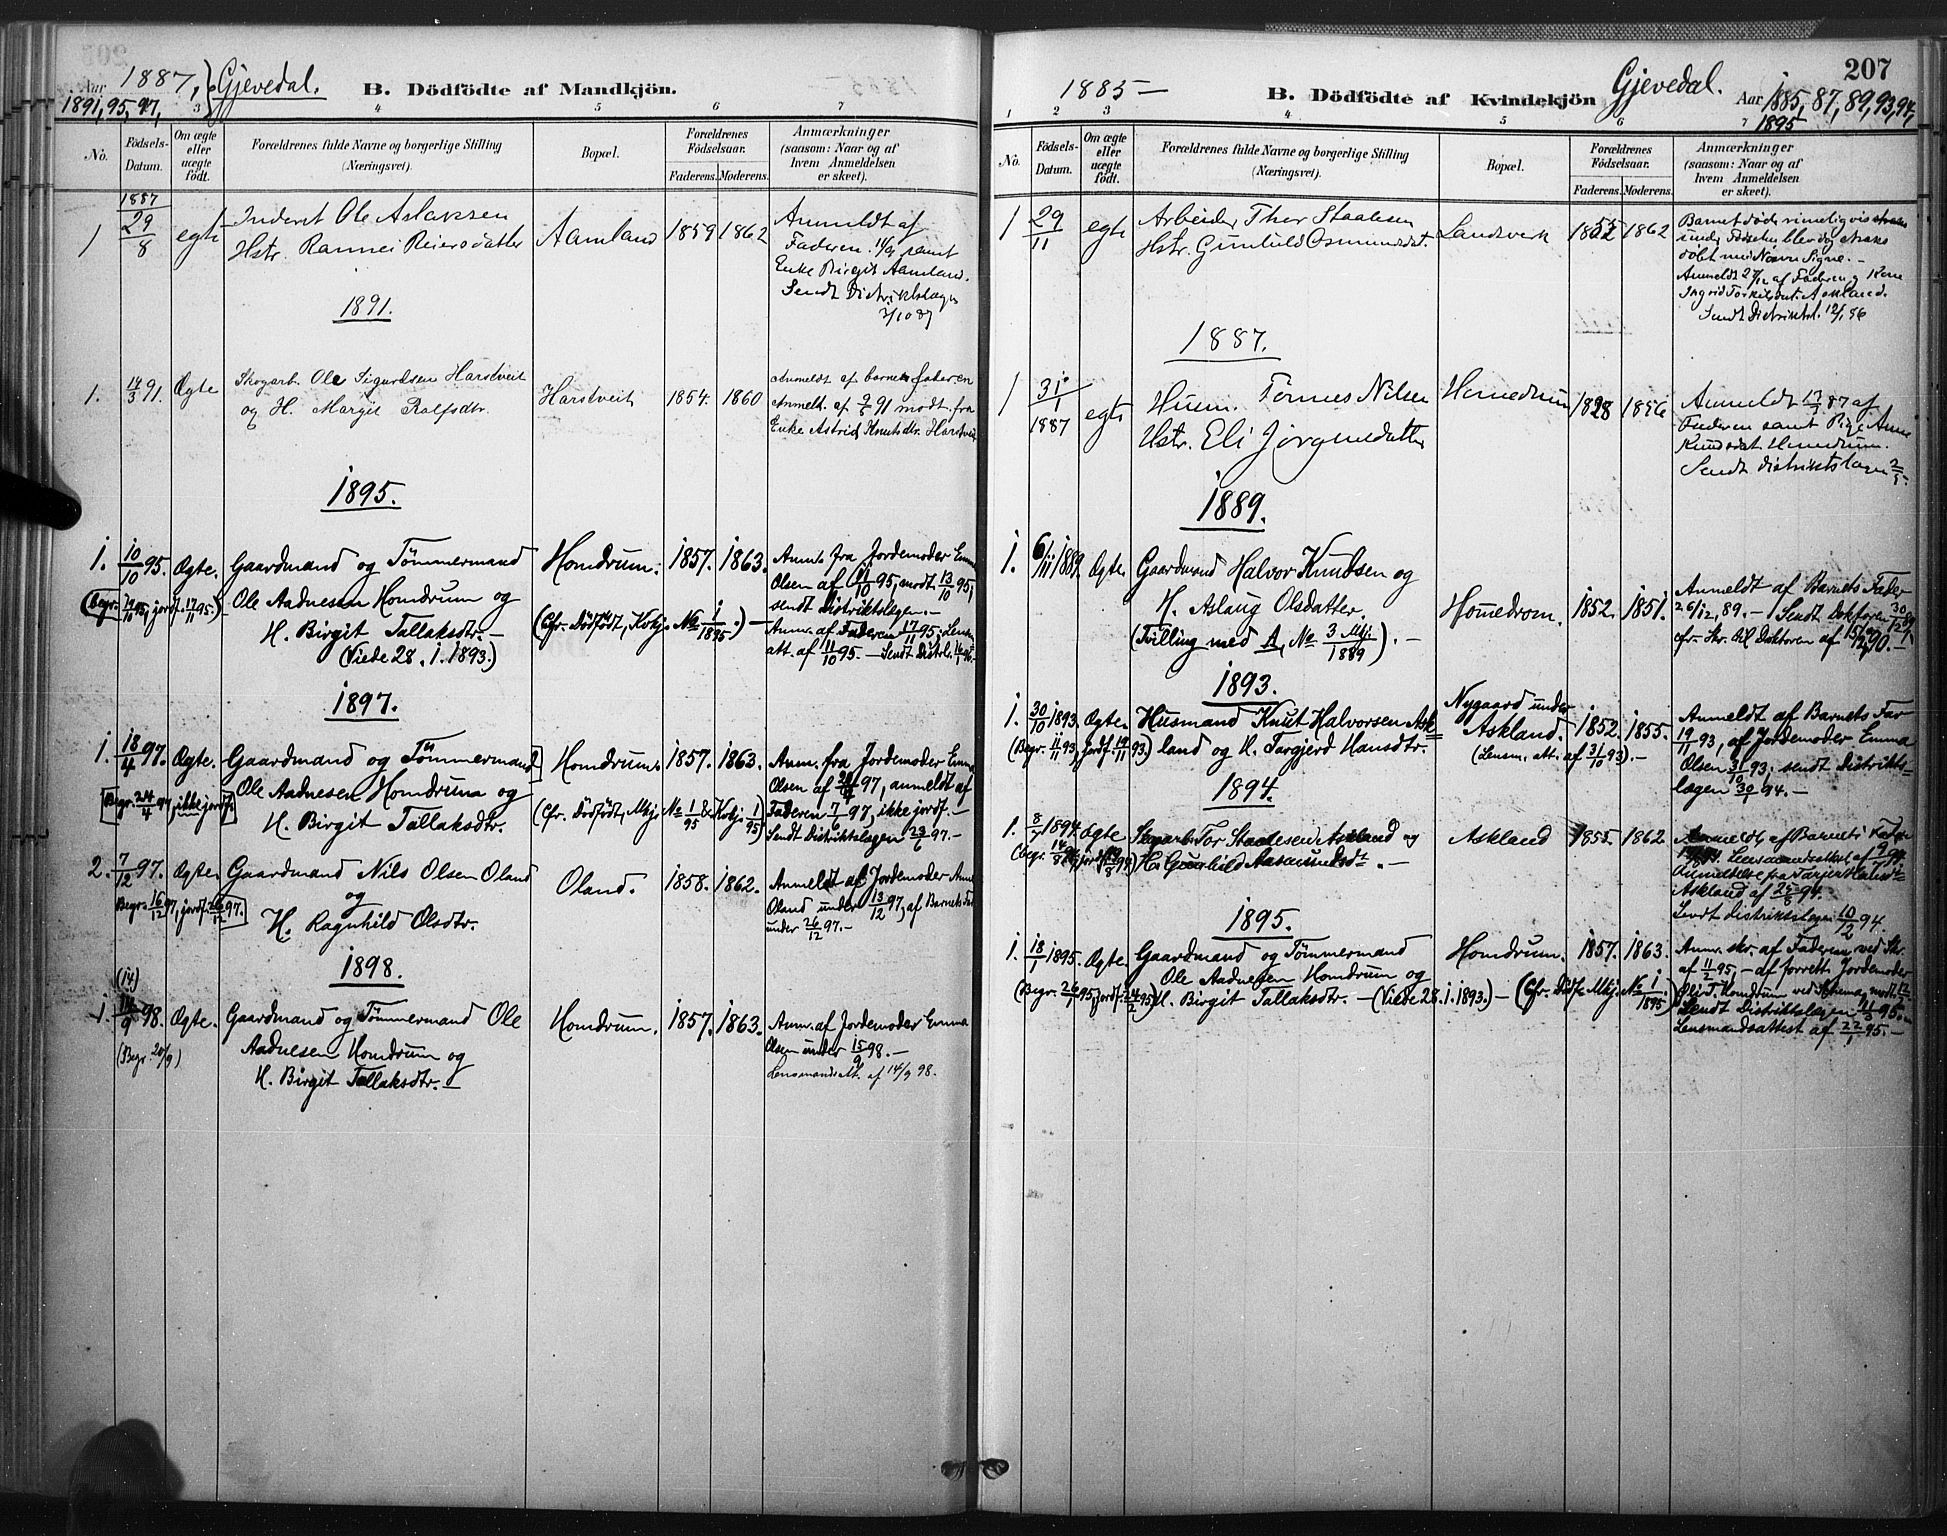 1887, } Gjevedal.
Aar 1891, 95, 97,
B. Dödfödte af Mandkjön.
3 4 5 6 7
No.
Födsels-Datum.
Om ægte eller uægte födt.
Forældrenes fulde Navne og borgerlige Stilling (Næringsvei).
Bopæl.
Forældrenes Födselsaar.
Faderens. Moderens.
Anmærkninger (saasom: Naar og af hvem Anmeldelsen er skeet).
1887
1 29/8 egte
Inderst Ole Aslaksen
Hstr. Rannei Reiersdatter
Aamland 1859 1862
Anmeldt af
Faderen samt
Enke Birgit Aamland.
Sendt Distriktslægen
1891.
1. 14/3 91. Ægte
Skogarb. Ole Sigurdsen Harstveit
og H. Margit Rolfsdtr.
Harstveit 1854. 1860
Anmeldt af barnets faderen
Anmeld. af 91 modt. fra
Enke Astrid Knutsdtr. Harstveit
1895.
1. 10/10 95. Ægte.
Gaardmand og Tömmermand
Ole Aadnesen Homdrum og
H. Birgit Tallaksdtr. –
(Viede 28. 1. 1893.)
Homdrum. 1857. 1863.
(Cfr. Dödfödt, Kvkj. No 1/1895.) –
Anm. fra Jordemoder Emma
Olsen af 11/10 95, modt. 13/10 95,
sendt Distriktslægen. –
Anm. af Faderen 17/11 95; Lensm.
att. af 11/10 95. – Sendt Distrl.
1897.
1. 18/4 97. Ægte.
[Begr. 24/4 97, ikke jordf.]
Gaardmand og Tömmermand
Ole Aadnesen Homdrum og
H. Birgit Tallaksdtr.
Homdrum. 1857. 1863.
(Cfr. Dödfödt, Mkj. No 1/95 & Kvkj. 1/95)
Anm. fra Jordemoder Emma
Olsen af 97, anmeldt af
Faderen 7/6 97, ikke jordf. –
Sendt Distriktslægen 97. –
2. 7/12 97. Ægte.
Begr. 16/12 97, jordf. 26/12 97.
Gaardmand Nils Olsen Oland
og
H. Ragnhild Olsdtr.
Oland. 1858. 1862.
Anmeldt af Jordemoder Anne
Oland under 13/12 97, af Barnets Fader
under 26/12 97. –
1898.
(14)
1. 98. Ægte.
(Begr. 20/9)
Gaardmand og Tömmermand Ole
Aadnesen Homdrum og
H. Birgit Tallaksdtr. –
Homdrum. 1857. 1863.
Anm. af Jordemoder Emma
Olsen under 15/9 98. –
Lensmandsatt. af 14/9 98.
1885 –
B. Dödfödte af Kvindekjön
Gjevedal.
207
Aar 1885, 87, 89, 93, 94,
1895
1 2 3 4 5 6 7
No.
Födsels-Datum.
Om ægte eller uægte födt.
Forældrenes fulde Navne og borgerlige Stilling (Næringsvei).
Bopæl.
Forældrenes Födselsaar.
Faderens. Moderens.
Anmærkninger (saasom: Naar og af hvem Anmeldelsen er skeet).
1 29/11 egte
Arbeider Thor Staalesen
Hstr. Gunhild Osmundsdat.
Landsverk 1862
Barnet döde rimeligvis
under Födselen blev dog straks
döbt med Navn Signe. –
Anmeldt af Faderen og Kone
Ingrid Torkilsdat. Askland.
Sendt Distriktsl.
1887.
1 31/1 1887 egte
Husm. Tönnes Nilsen
Hstr. Eli Jörgensdatter
Homedrum 1828 1856
Anmeldt 87 af
Faderen samt Pige Anne
Knudsdat. Homedrum.
Sendt distriktslægen
1889.
1. 6/11 1889. Ægte
Gaardmand Halvor Knudsen og
H. Aslaug Olsdatter.
(Tvilling med A, No 3 Mkj./1889). –
Homedrom. 1852. 1851.
Anmeldt af Barnets Fader
26/12, 89. – Sendt Doktoren
cfr. Skr. til Doktoren af 90. –
1893.
1. 30/10 1893. Ægte.
(Begr. 93, jordf. 19/11 93.)
Husmand Knut Halvorsen Ask=
land og H. Torgjerd Hansdtr.
Nygaard under
Askland. 1852. 1855.
(Lensm. att. af 31/10 93). –
Anmeldt af Barnets Far
19/11 93, af Jordemoder Emma
Olsen 31/10 93; sendt Distrikts-
lægen 94. –
1894.
1. 1894. Ægte
Tor Staalesen Askland og
H. Gunhild Aasmundsdtr. –
Askland 1855. 1862.
Anmeldt af Barnets Fader
Lensmandsattest af
Anmeldelse fra Tarjer
Askland af 94.
Sendt distriktslægen 94.
1895.
1. 18/1 1895. Ægte.
Gaardmand og Tömmermand
Ole Aadnesen Homdrum og
H. Birgit Tallaksdtr. – (Viede 28. 1. 1893.) – (Cfr. Dödf. Mkj. No 1/1895.)
Homdrum. 1857. 1863.
Anm. skr. af Faderen ved Skr.
af 11/2 95, – af forrett. Jordemoder
Homdrum ved
Sendt Distriktslægen 95. –
Lensmandsattest af 22/1 95. –